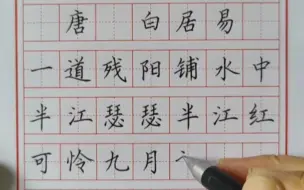 唐 白居易
一道残阳铺水中
半江瑟瑟半江红
可怜九月